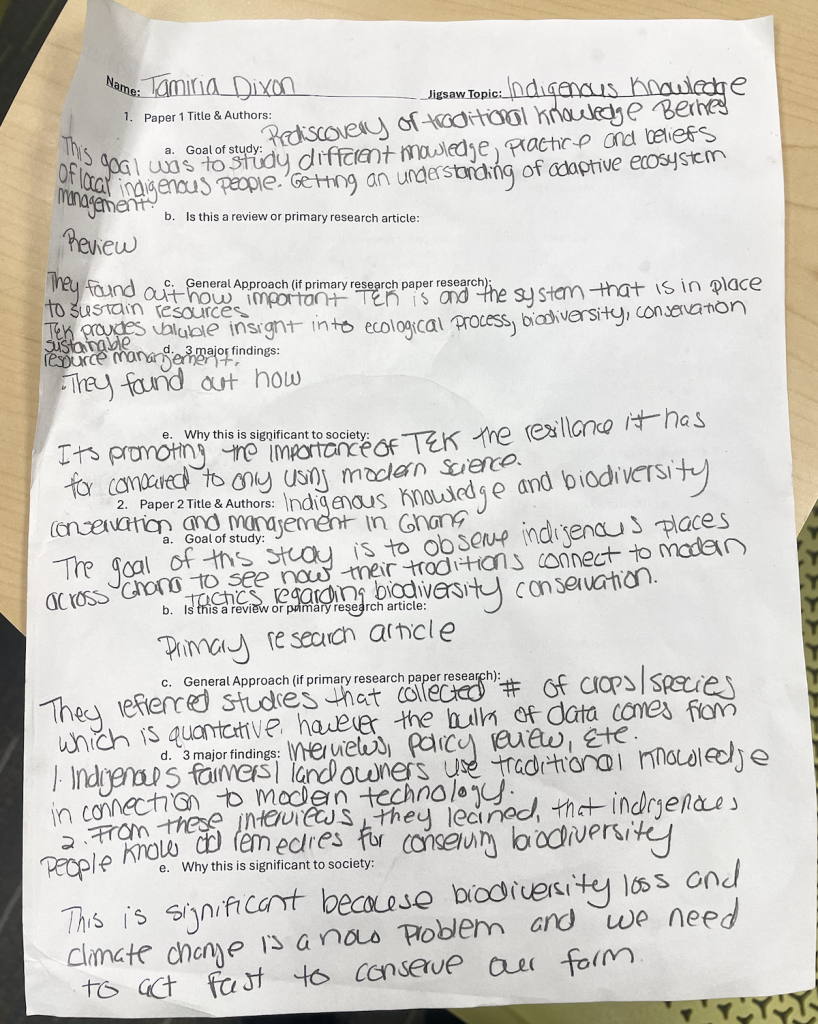 Name: Tamiria Dixon Jigsaw Topic: Indigenous Knowledge
1. Paper 1 Title & Authors: Rediscovery of traditional knowledge Berkes
a. Goal of study:
This goal was to study different knowledge, practice and beliefs
of local indigenous people. Getting an understanding of adaptive ecosystem
management.
b. Is this a review or primary research article:
Review
c. General Approach (if primary research paper research):
They found out how important TEK is and the system that is in place
to sustain resources
TEK provides valuable insight into ecological process, biodiversity, conservation
sustainable
resource management.
d. 3 major findings:
They found out how
e. Why this is significant to society:
Its promoting the importance of TEK the resillance it has
for compared to only using modern science.
2. Paper 2 Title & Authors: Indigenous knowledge and biodiversity
conservation and management in Ghana
a. Goal of study:
The goal of this study is to observe indigenous places
across Ghana to see how their traditions connect to modern
tactics regarding biodiversity conservation.
b. Is this a review or primary research article:
Primary research article
c. General Approach (if primary research paper research):
They referred studies that collected # of crops/species
which is quantative, however the bulk of data comes from
d. 3 major findings: Interviews, policy review, etc.
1. Indigenous farmers/landowners use traditional knowledge
in connection to modern technology.
2. From these interviews, they learned, that indigenous
people know old remedies for conserving biodiversity
e. Why this is significant to society:
This is significant because biodiversity loss and
climate change is a now problem and we need
to act fast to conserve our farm.